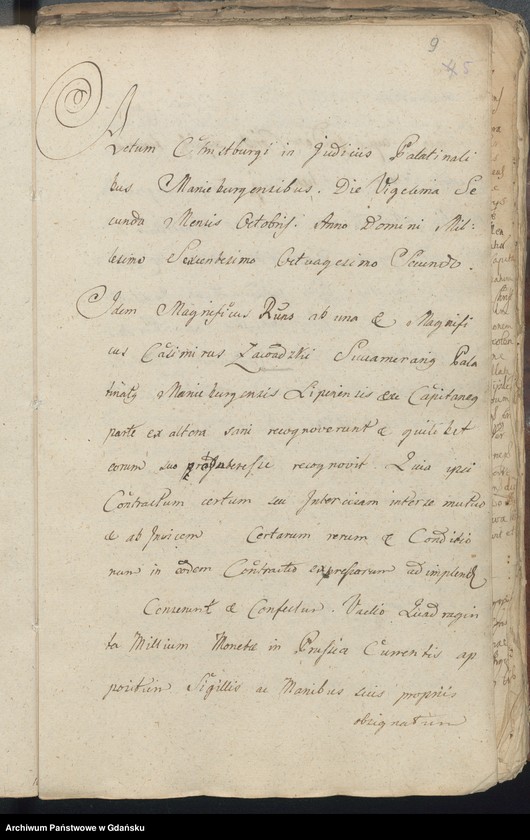 9
45
Actum Christburgi in Judicijs Palatinali
bus Marieburgensibus. Die Vigesima Se
cunda Mensis Octobris. Anno Domini Mil-
lesimo Sexcentesimo Octuagesimo Secundo.
Idem Magnificus ab una & Magnifi
cus Casimirus Zawadzki Succamerarig Pala
tinatg Marieburgensis Lipinensis Capitaneg
parte ex altera sani recognoverunt & quilibet
eorum suo interesse recognovit. Quia ipsi
Contractum certum seu Intercisam inter se mutuo
& ab Invicem Certarum rerum & Conditio
num in eodem Contractu expressarum ad implend
Convenerunt & Confectum. Vadio Quadragin
ta Millium Moneta in Prussia Currentis ap
positum Sigillis ac Manibus suis proprijs
obsignatum
Archiwum Państwowe w Gdańsku